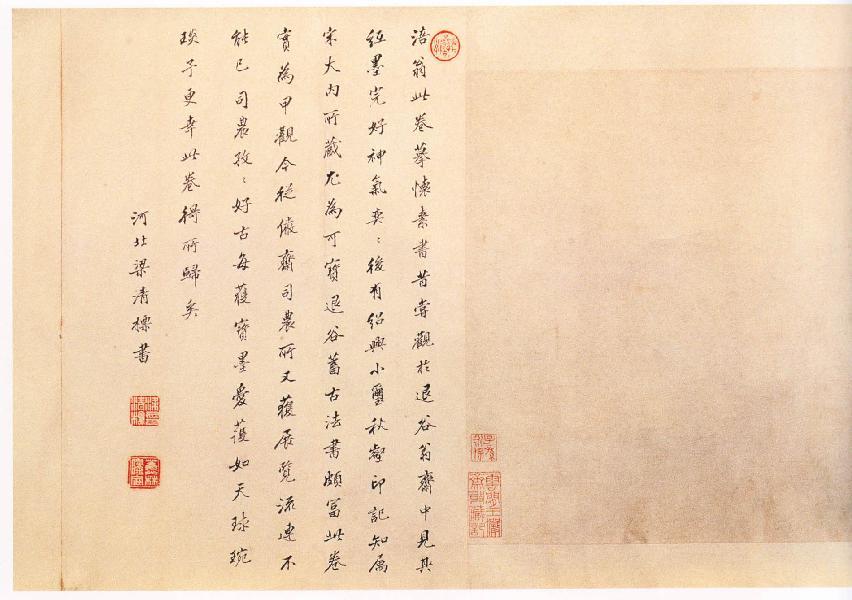 涪翁此卷摹懷素書昔嘗觀於退谷翁齋中見其
紙墨完好神氣奕〻後有紹興小璽秋壑印記知屬
宋大内所藏尤為可寳退谷蓄古法書頗富此卷
實為甲觀今從儼齋司農所又獲展覽流連不
能已司農孜〻好古每獲寳墨愛護如天球琬
琰予更幸此卷得所歸矣
河北梁清標書